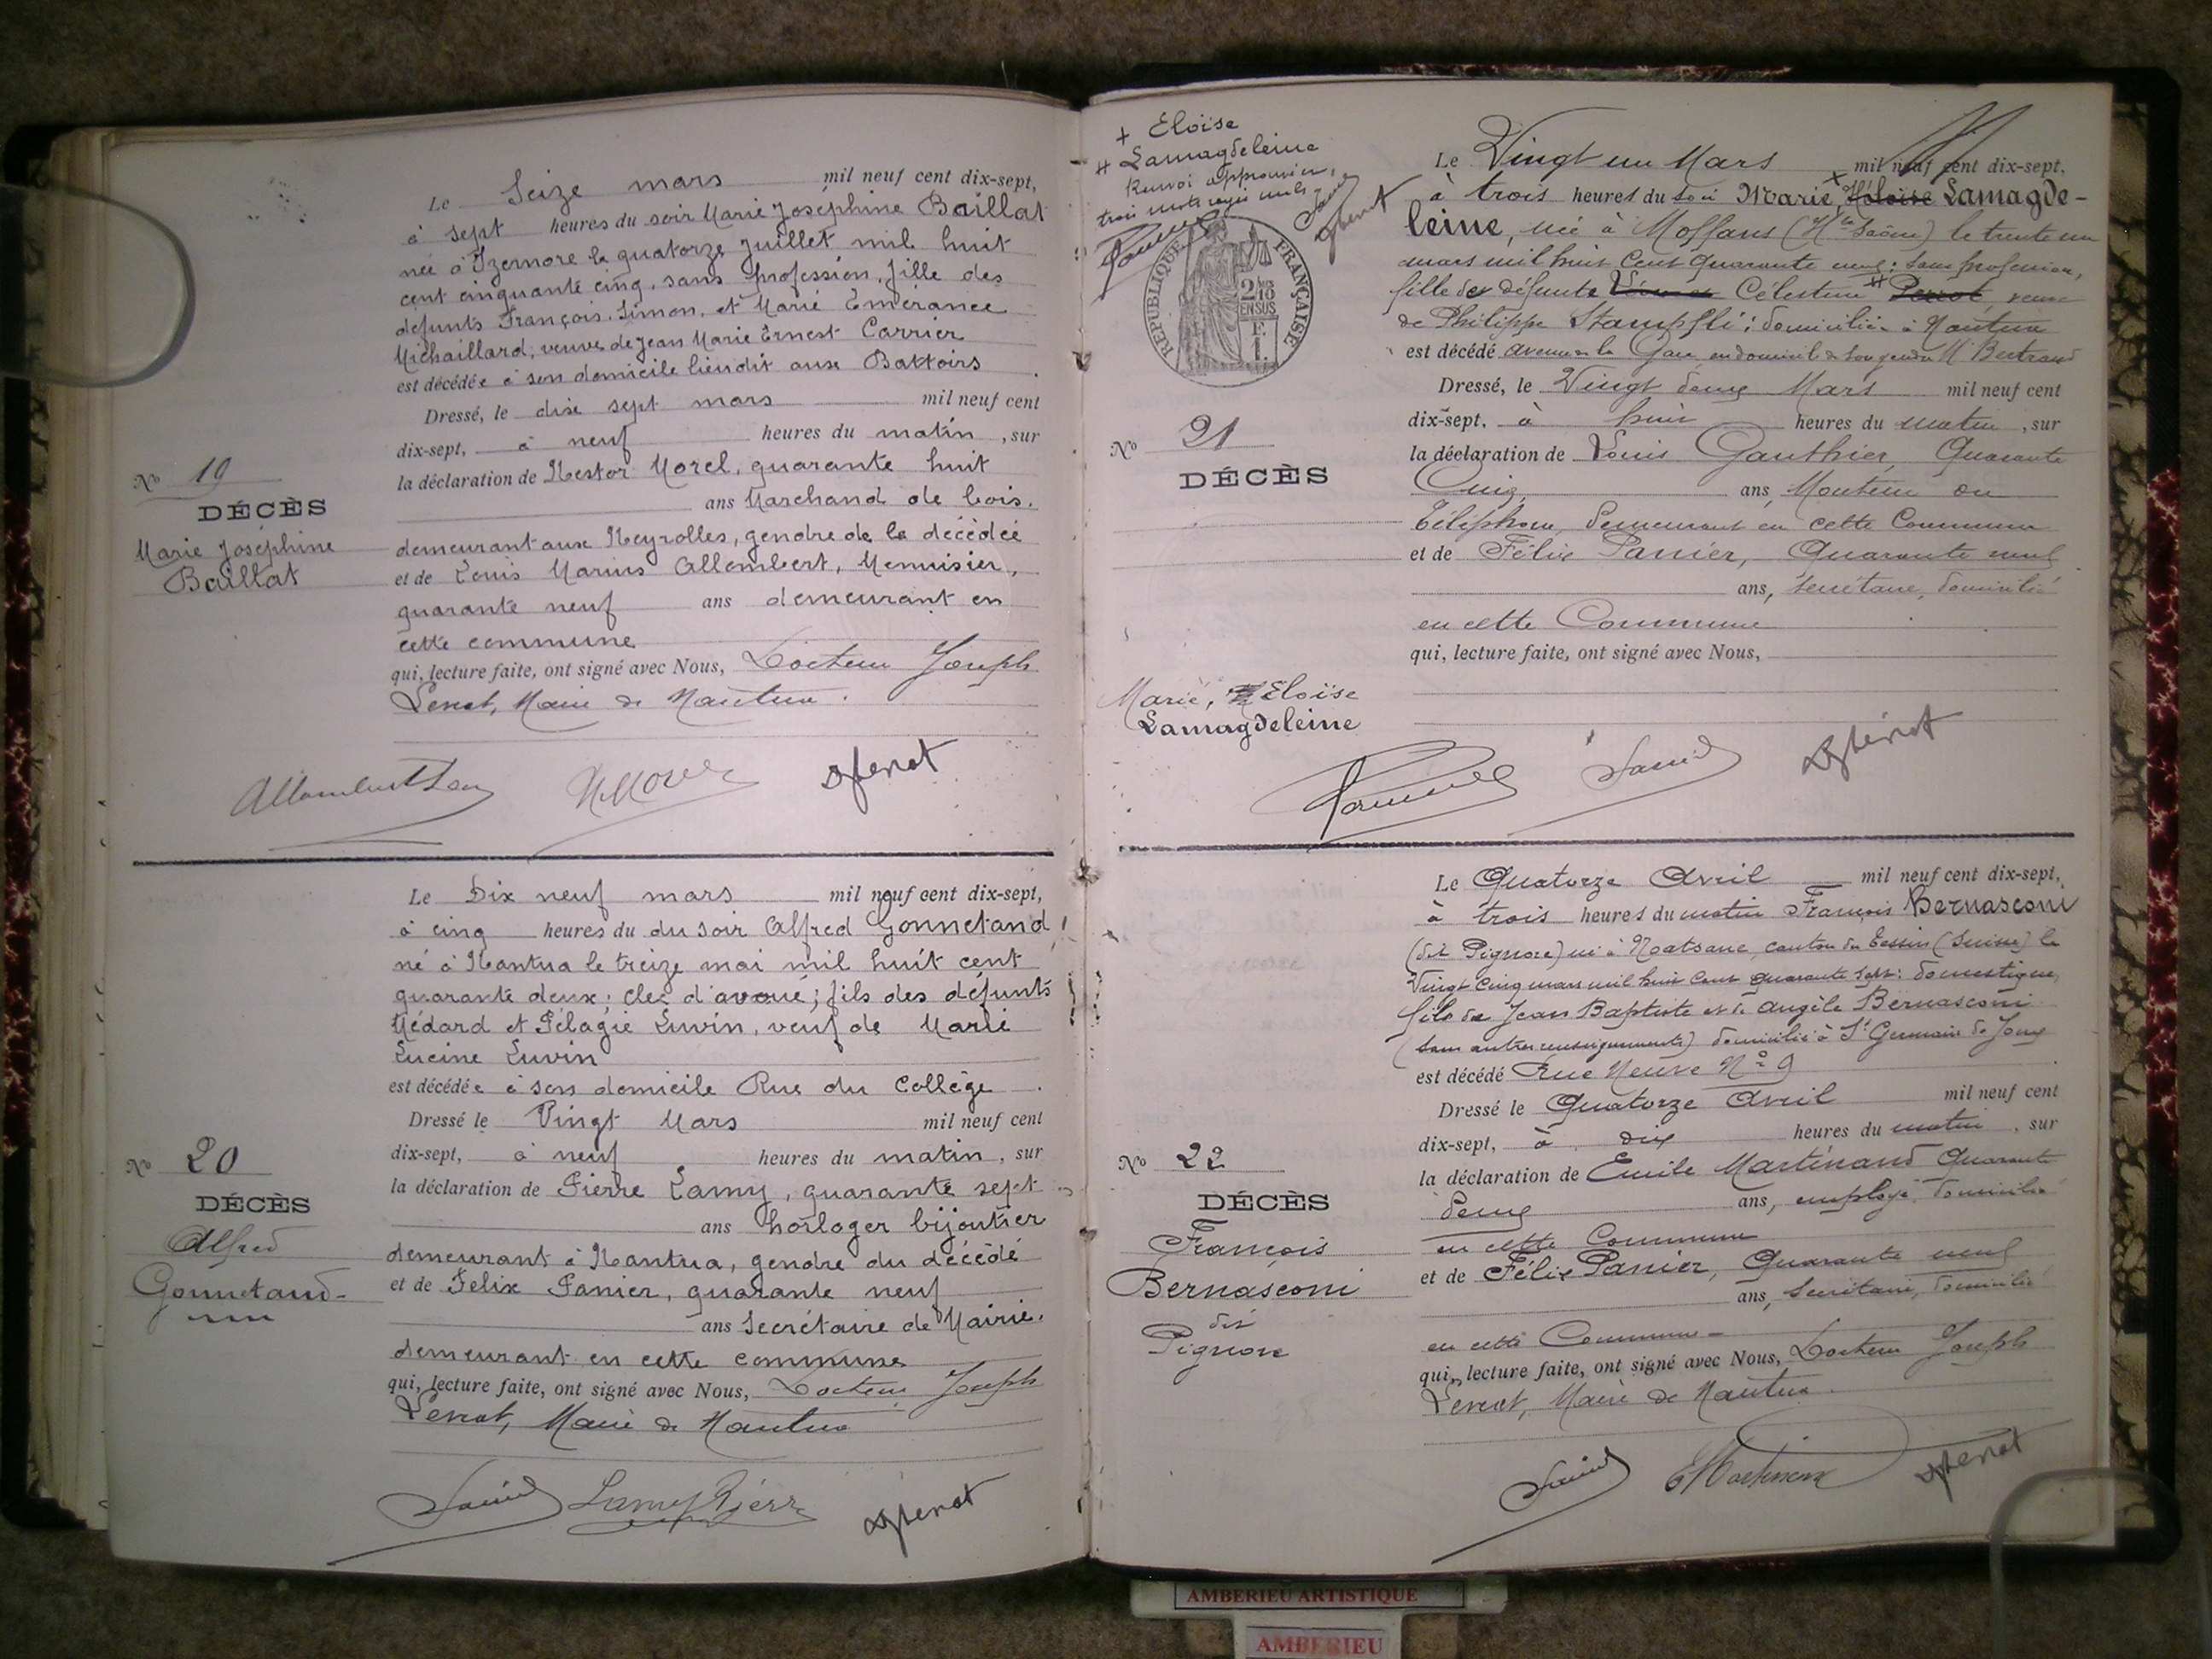 Le Seize mars mil neuf cent dix-sept,
à sept heures du soir Marie Joséphine Baillat
née à Izernore le quatorze Juillet mil huit
cent cinquante cinq, sans profession, fille des
défunts François Simon, et Marie Emérance
Michaillard, veuve de Jean Marie Ernest Carrier
est décédée à son domicile lieu dit aux Battoirs
Dressé, le dix sept mars mil neuf cent
dix-sept, à neuf heures du matin, sur
la déclaration de Nestor Morel, quarante huit
ans Marchand de bois,
demeurant aux Neyrolles, gendre de la décédée
et de Louis Marius Allombert, Menuisier,
quarante neuf ans demeurant en
cette commune
qui, lecture faite, ont signé avec Nous, Docteur Joseph
Levrat, Maire de Nantua.
No 19
DÉCÈS
Marie Joséphine
Baillat
Le Dix neuf mars mil neuf cent dix-sept,
à cinq heures du du soir Alfred Gonnetand,
né à Nantua le treize mai mil huit cent
quarante deux; clec d'avoué; fils des défunts
Médard et Pélagie Luvin, veuf de Marie
Lucine Luvin
est décédée à son domicile Rue du Collège.
Dressé le Vingt Mars mil neuf cent
dix-sept, à neuf heures du matin, sur
la déclaration de Pierre Lamy, quarante sept
ans horloger bijoutier
demeurant à Nantua, gendre du décédé
et de Felix Panier, quarante neuf
ans Secrétaire de Mairie.
demeurant en cette commune
qui, lecture faite, ont signé avec Nous, Docteur Joseph
Levrat, Maire de Nantua
Lamy Pierre
No 20
DÉCÈS
Alfred
Gonnetand
+ Eloïse
# Lamagdeleine
Renvoi approuvés,
trois mots rayés nuls
RÉPUBLIQUE FRANÇAISE
2/10
EN SUS
1 F.
Le Vingt un Mars mil neuf cent dix-sept,
à trois heures du soir Marie, + Héloïse Lamagde-
leine, née à Moffans (Hte Saône) le trente un
mars mil huit cent quarante neuf; sans profession,
fille des défunts Célestine # Perrot, veuve
de Philippe Stampfli; domiciliée à Nantua
est décédé avenue de la Gare, en domicile de son gendre M. Bertrand
Dressé, le Vingt deux Mars mil neuf cent
dix-sept, à huit heures du matin, sur
la déclaration de Louis Gauthier, Quarante
Cinq, ans, Monteur au
Téléphone, demeurant en cette Commune
et de Félix Panier, Quarante neuf
ans, secrétaire, domicilié
en cette Commune
qui, lecture faite, ont signé avec Nous,
No 21
DÉCÈS
Marie, Eloïse
Lamagdeleine
Le Quatorze Avril mil neuf cent dix-sept,
à trois heures du matin François Bernasconi
(dit Pignore) né à canton du Tessin (Suisse) le
Vingt cinq mars mil huit cent quarante sept: domestique,
fils de Jean Baptiste et de Angèle Bernasconi
(sans autres renseignements) domicilié à St Germain de Joux
est décédé Rue Neuve No 9
Dressé le Quatorze Avril mil neuf cent
dix-sept, à dix heures du matin, sur
la déclaration de Emile Martinand Quarante
deux ans, employé, domicilié
en cette Commune
et de Félix Panier, Quarante neuf
ans, Secrétaire, domicilié
en cette Commune
qui, lecture faite, ont signé avec Nous, Docteur Joseph
Levrat, Maire de Nantua.
No 22
DÉCÈS
François
Bernasconi
dit
Pignore
AMBERIEU ARTISTIQUE
AMBERIEU